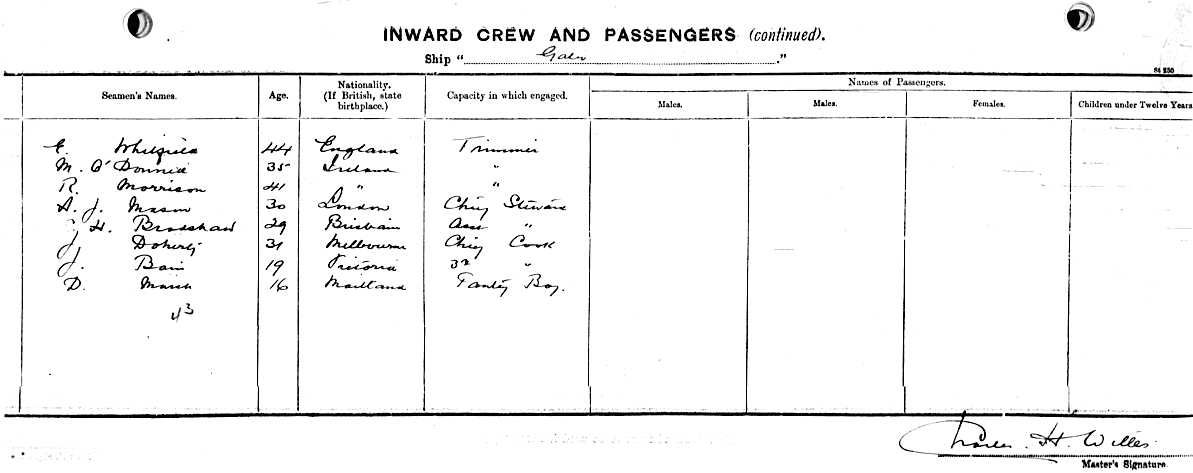 INWARD CREW AND PASSENGERS (continued).
Ship " ."
Seamen's Names. Age. Nationality. (If British, state birthplace.) Capacity in which engaged. Names of Passengers.
Males. Males. Females. Children under Twelve Years
E. Whitfield 44 England Trimmer
M. O'Donnell 35 Ireland "
R. Morrison 41 " "
A. J. Mason 30 London Chief Steward
H. Bradshaw 29 Brisbane Asst "
J. Doherty 31 Melbourne Chief Cook
J. Bain 19 Victoria 3rd "
D. 16 Maitland Boy.
43
Charles H. Willes
Master's Signature